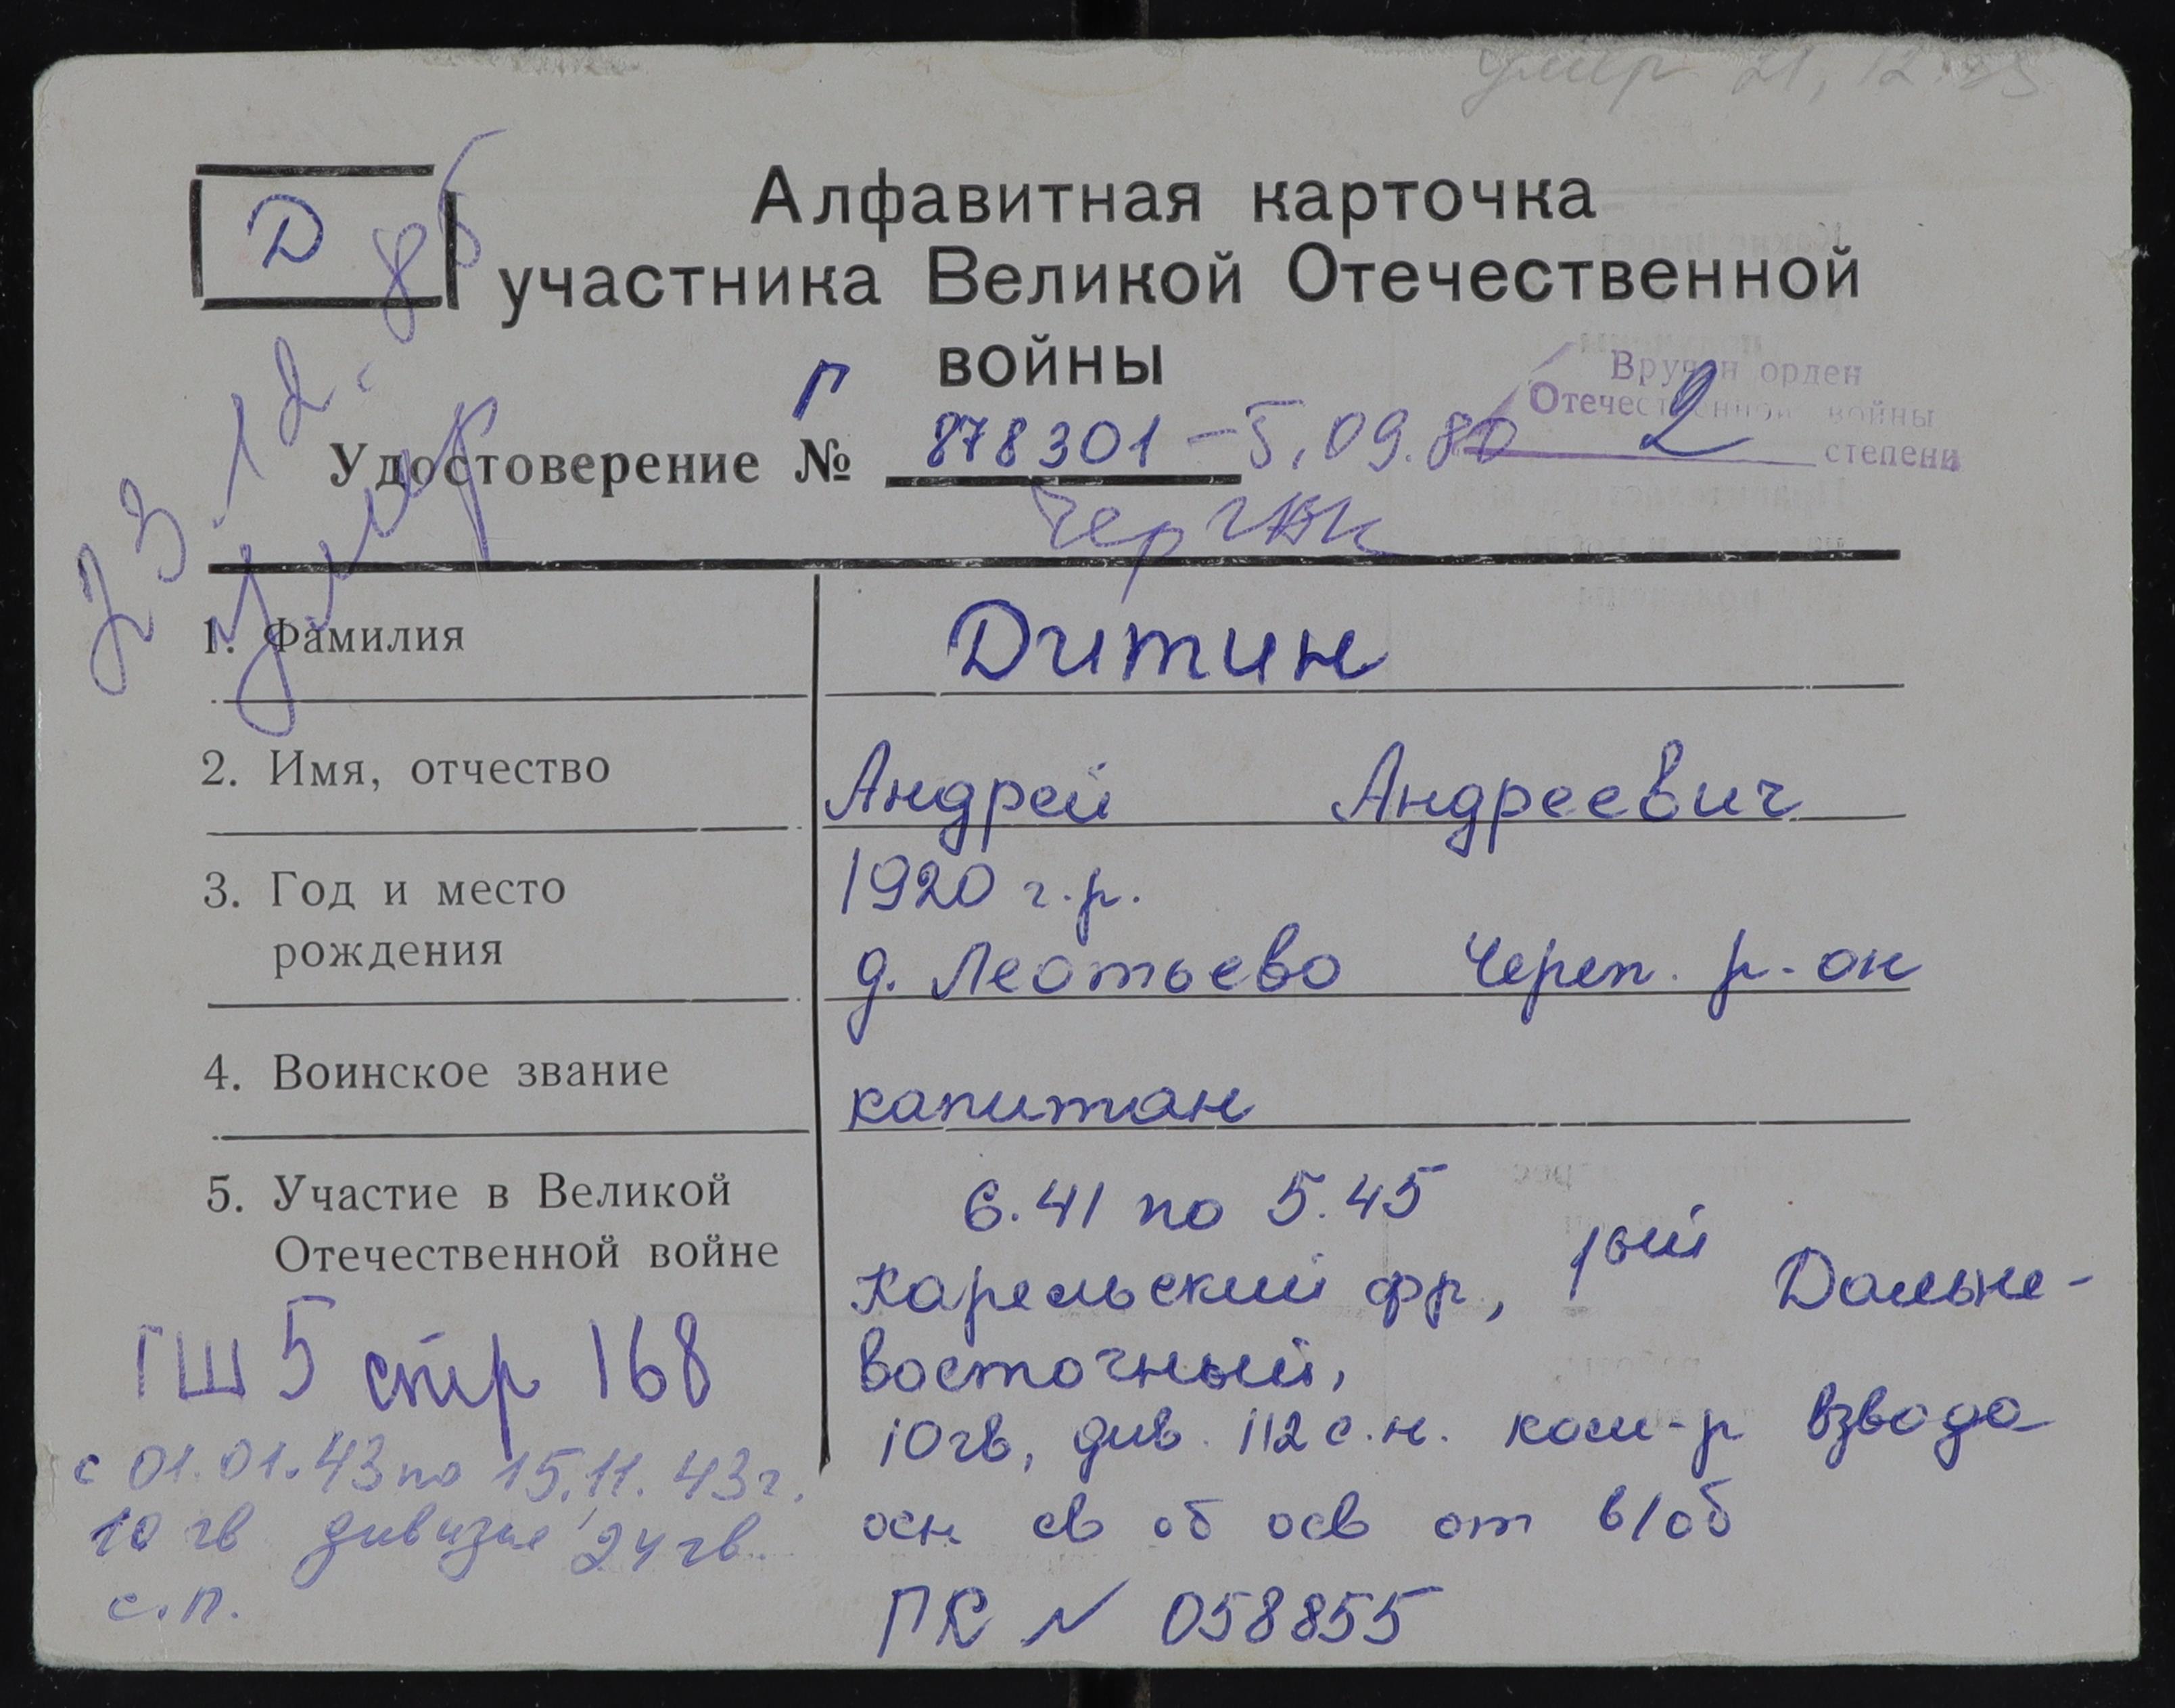 умер 21.12.
Д
Алфавитная карточка
участника Великой Отечественной
войны
Вручен орден
Отечественной войны
2 степени
Г
Удостоверение № 878301 – 5.09.80
Чер ГВК
23.12.86
умер
1. Фамилия Дитин
2. Имя, отчество Андрей Андреевич
3. Год и место 1920 г.р.
рождения д. Леотьево Череп. р-он
4. Воинское звание капитан
5. Участие в Великой 6.41 по 5.45
Отечественной войне Карельский фр, 1ый Дальне-
восточный,
ГШ 5 стр 168
10 гв. див. 112 с.н. ком-р взвода
с 01.01.43 по 15.11.43 г.
осн св об осв от в/об
10 гв дивизия 24 гв.
с.п.
ПК N 058855